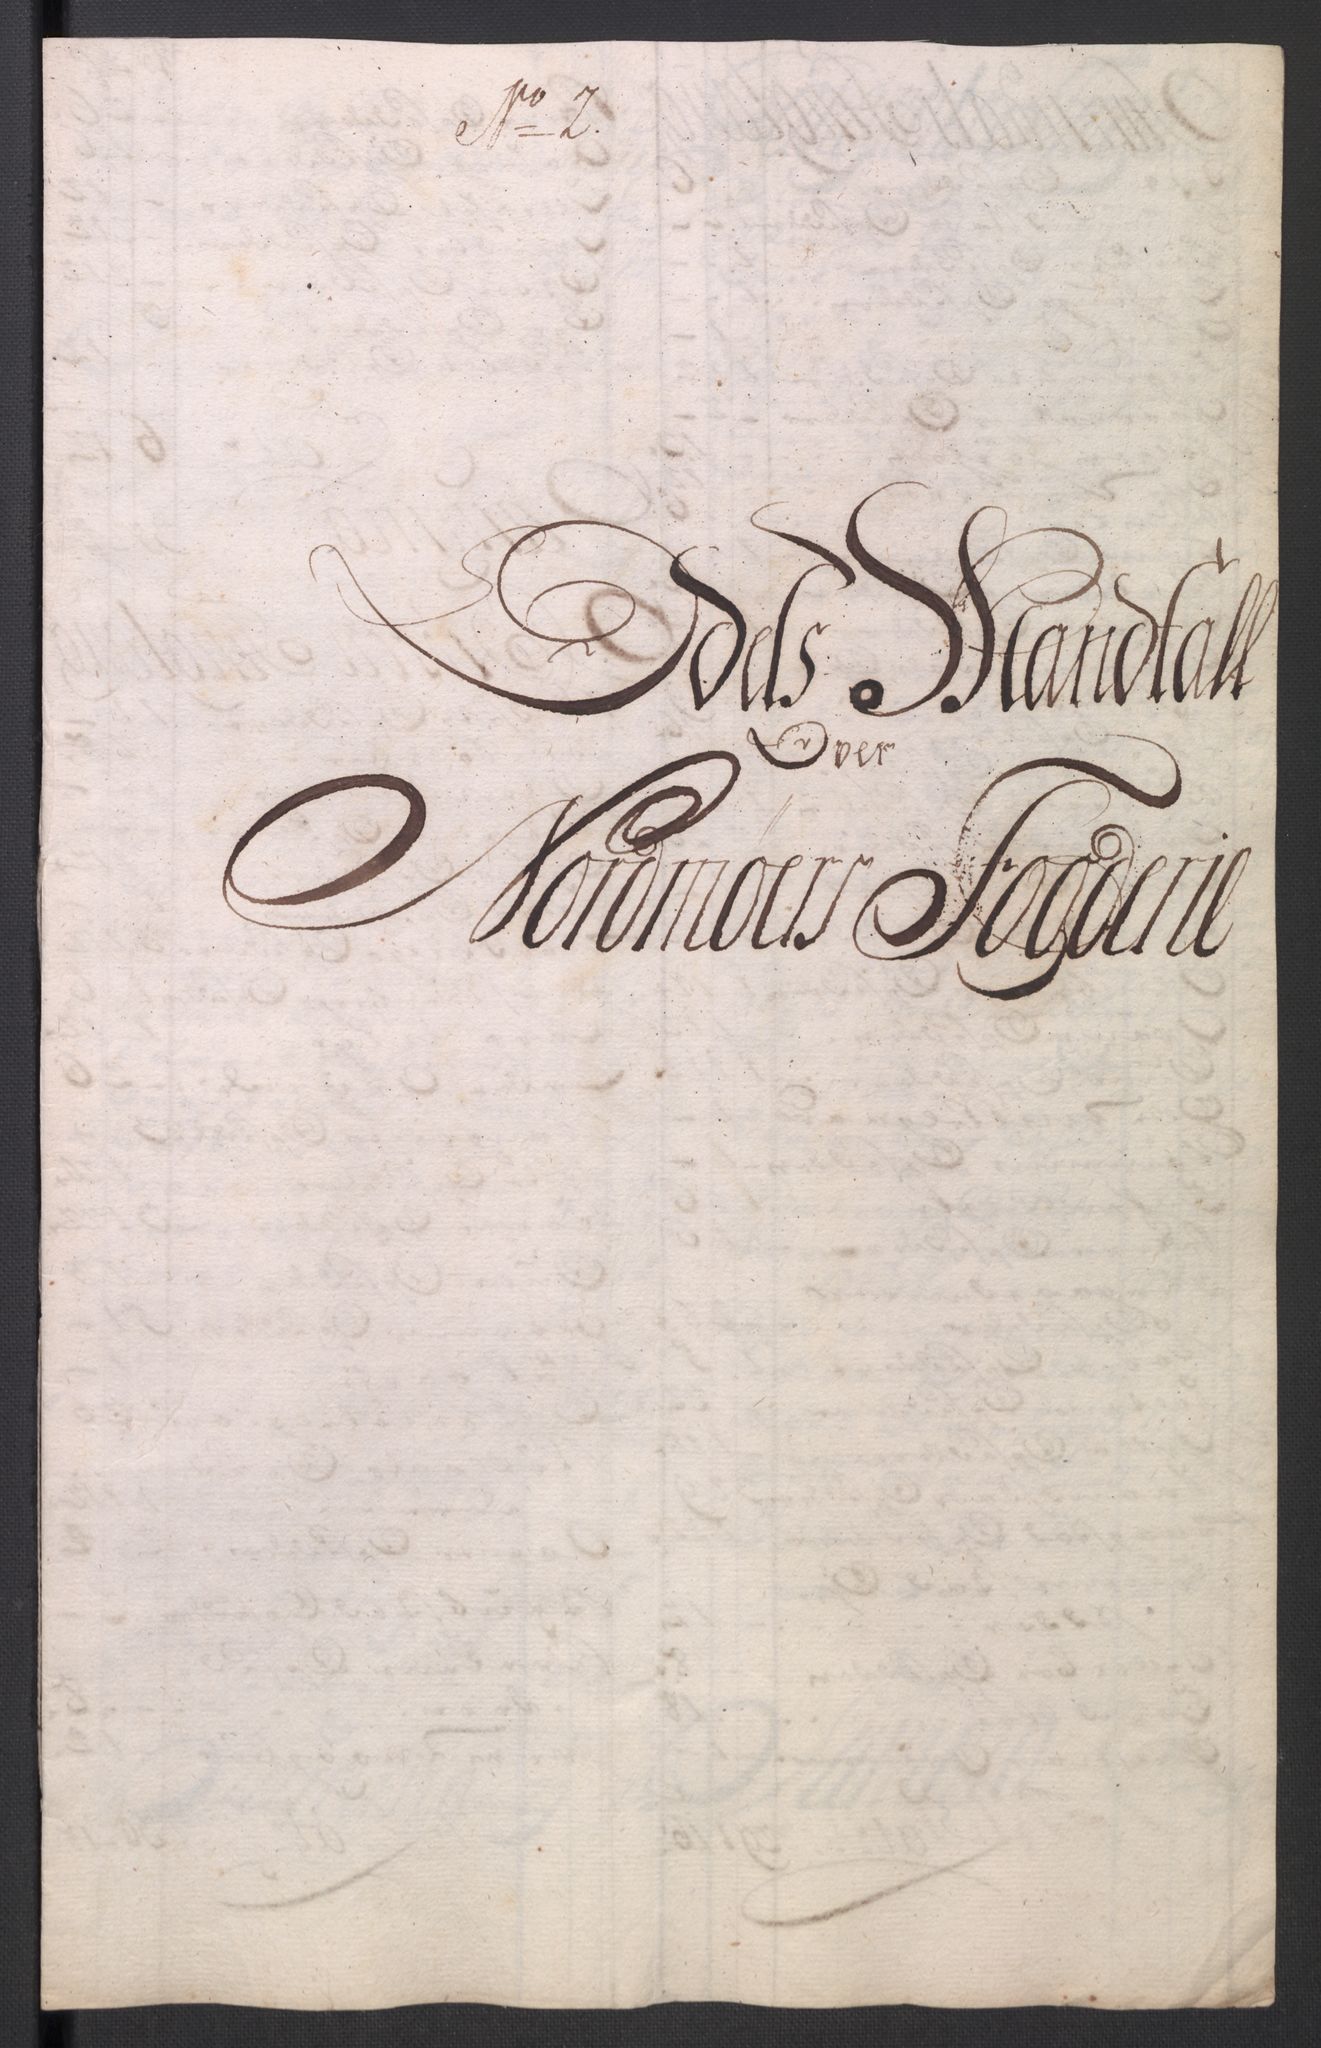 No 2.
Odels Mandtall
Over
Nordmöers Fogderie